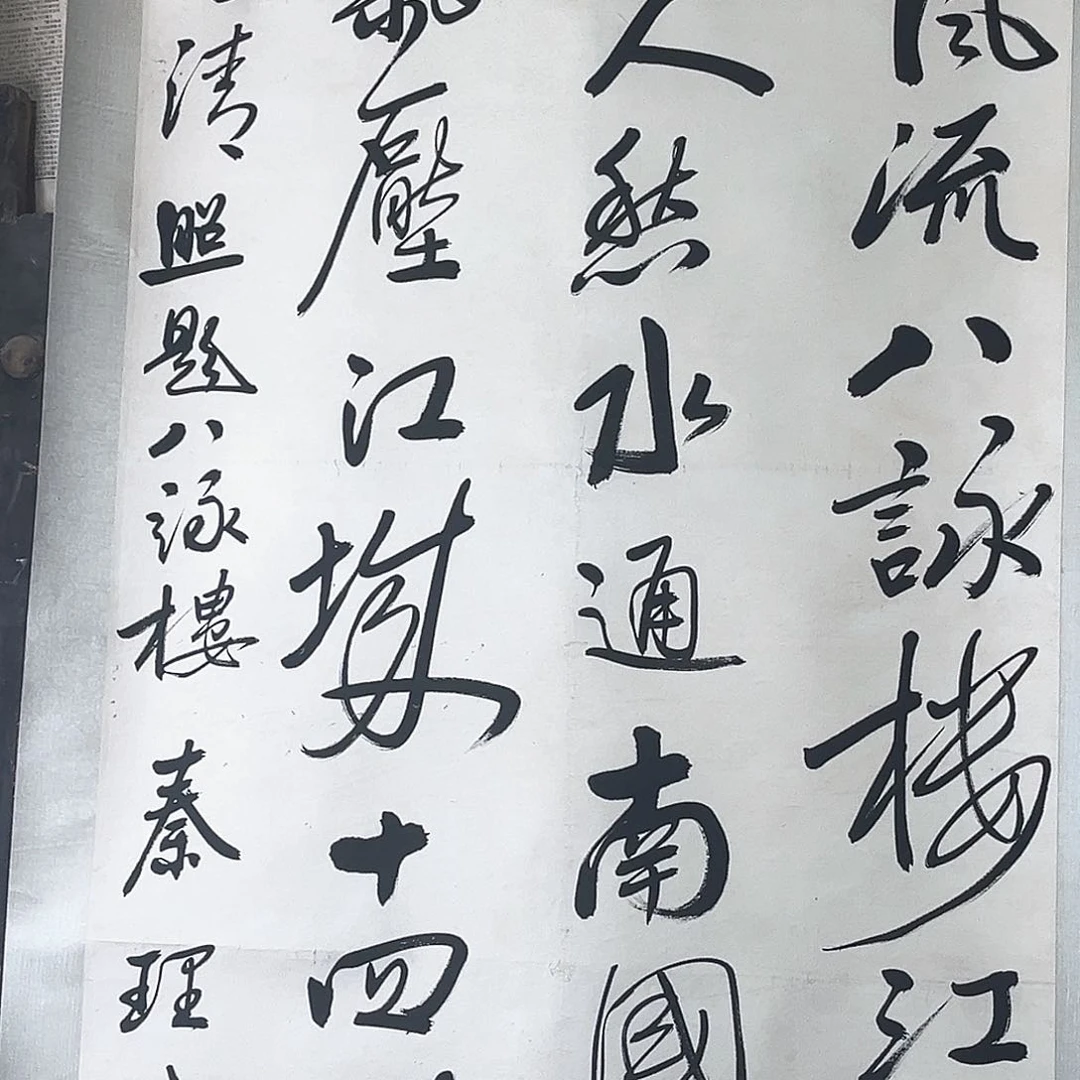 風流八詠樓江
人愁水通南國
氣壓江城十四
清照題八詠樓秦理